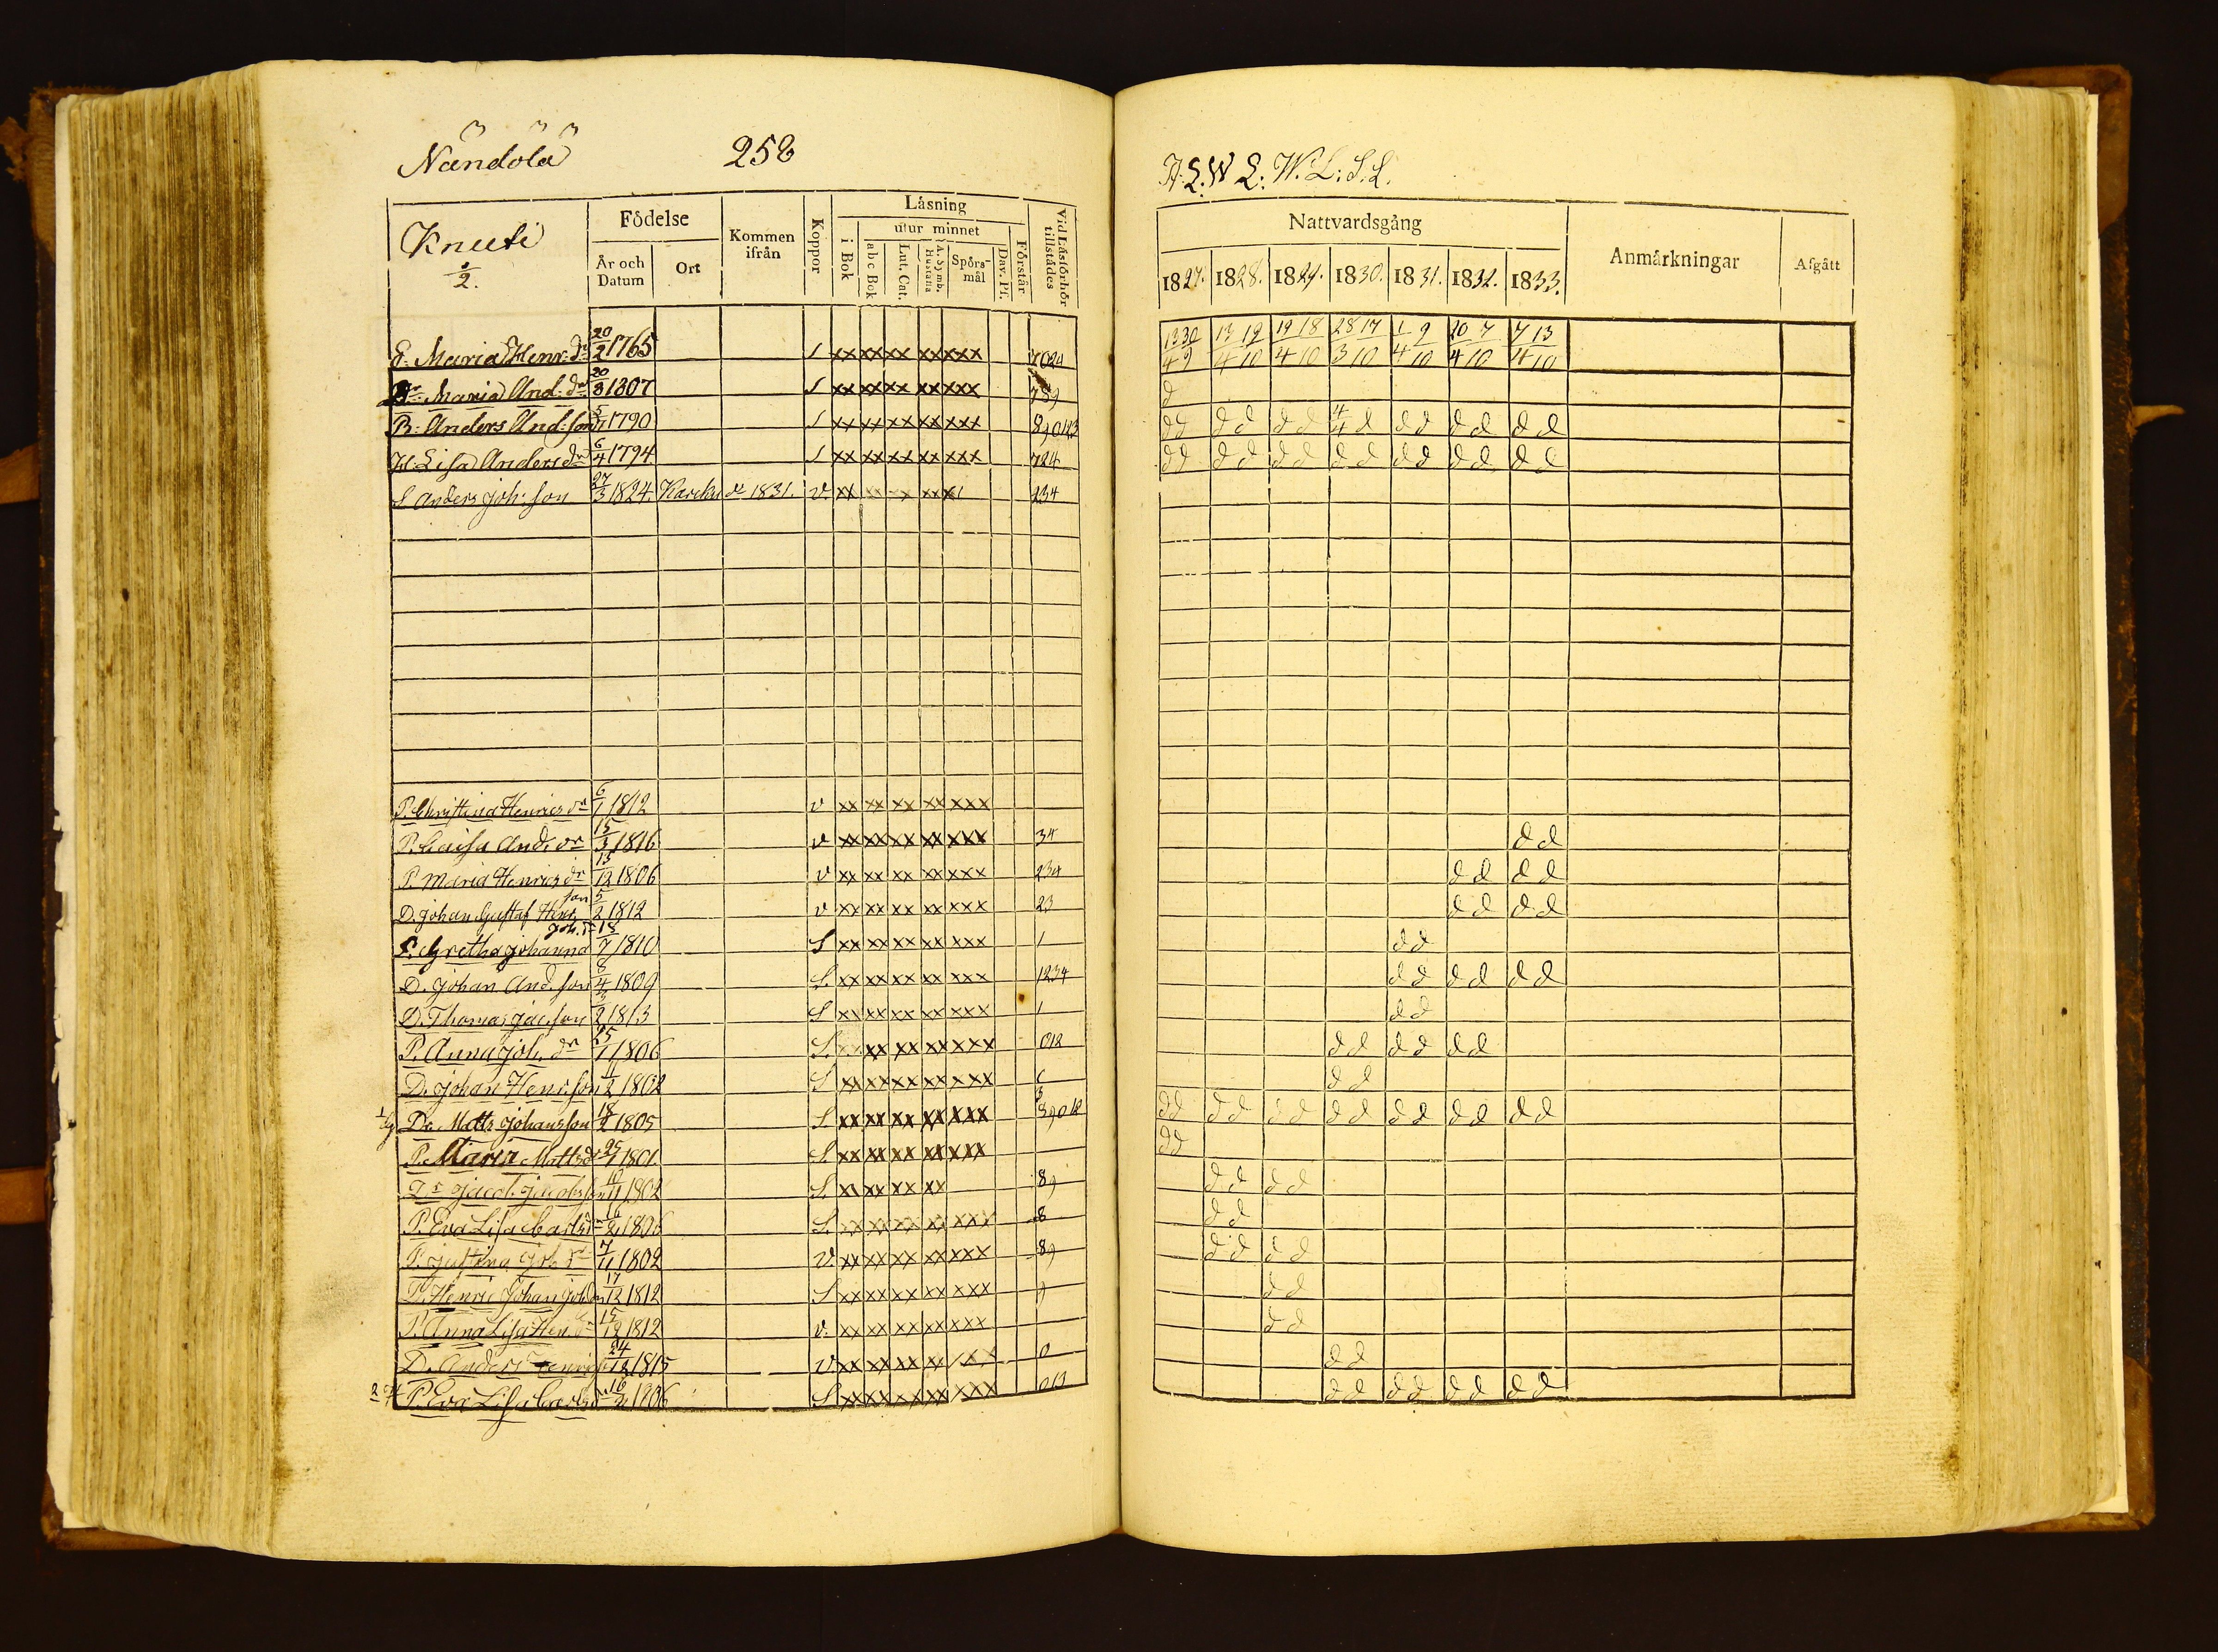 Nändölä 258
Knuti
1/2.
Födelse
År och Datum
Ort
Kommen ifrån
Koppor
Läsning
i Bok
utur minnet
abc Bok
Lut. Cat.
A. Symb. Hustafla
Spörsmål
Dav. Ps.
Förstår
Vid Läsförhör tillstådes
E. Maria Henr. dr 20/2 1765 S xx xx xx xx xxx
Dr Maria And. dr 20/8 1807 S xx xx xx xx xxx 789
B. Anders And. son 1790 S xx xx xx xx xxx
H. Lisa Anders dr 6/4 1794 S xx xx xx xx xxx 724
S. Anders Joh. son 27/3 1824. Karcku 1831. v. xx 234
P. Christina Henrics dr 6/1 1812 v xx xx xx xx xxx
P. Caisa And. dr 15/3 1816 v xx xx xx xx xxx 34
P. Maria Henrics dr 13/12 1806 v xx xx xx xx xxx 234
D. Johan Gustaf Henr. son 5/2 1812 v xx xx xx xx xxx 23
P. Gretha Johanna Joh. dr 18/7 1810 S xx xx xx xx xxx 1
D. Johan And. son 8/4 1809 S. xx xx xx xx xxx 1234
D. Thomas Jac. son 2 1813 S xx xx xx xx xxx 1
P. Anna Joh. dr 25/1 1806 S. xx xx xx xxx 012
D. Johan Henr. son 11/2 1802 S xx xx xx xx xxx
Dr Matts Johansson 18/2 1805 S. xx xx xx xx xxx
P. Maria Mattsdr 1801 S. xx xx xx xx xxx
Dr Jacob Jacobsson 1802 S. xx xx xx xx 89
P. Eva Lisa Carlsdr 16/2 1806 S. xx xx xx xx xxx 8
P. Justina Joh. dr 7/11 1802 v. xx xx xx xx xxx 89
D. Henric Johan Joh. son 17/12 1812 S xx xx xx xx xxx 9
P. Anna Lisa Hen. dr 15/12 1812 v. xx xx xx xx xxx
D. Anders Henrics 24/12 1815 v xx xx xx xx xxx 0
P. Eva Lisa Carlsdr 16/2 1806 S xx xx xx xx xxx
W. L: S. L.
Nattvardsgång
Anmärkningar
Afgått
1827. 1828. 1829. 1830. 1831. 1832. 1833.
13/4 30/9 13/4 19/10 19/4 18/10 28/3 17/10 1/4 9/10 20/4 7/10 7/4 13/10
d
dd dd dd 4/4 d dd dd dd
dd dd dd dd dd dd dd
dd
dd dd
dd dd
dd
dd dd dd
dd
dd dd dd
dd
dd dd dd dd dd dd dd
dd
dd dd
dd
dd dd
dd
dd
dd
dd dd dd dd